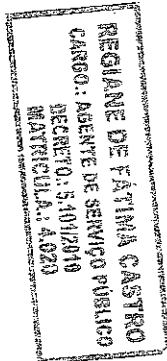 REGIANE DE FÁTIMA CASTRO
CARGO.: AGENTE DE SERVIÇO PÚBLICO
DECRETO.: 5.101/2019
MATRICULA.: 4.020